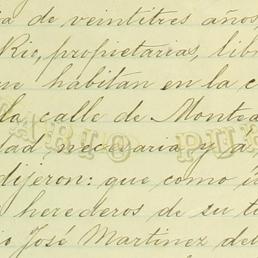 ia de veintitres años,
Rio, propietarias, lib
ue habitan en la c
la calle de Monte
TARIO PU
dad necesaria y a
dijeron: que como in
herederos de su t
io José Martinez del